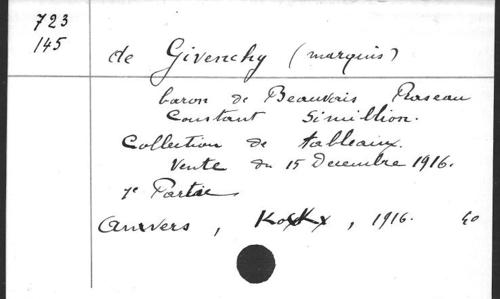 723
145
de Givenchy (marquis)
baron de Beauvais Raseau
Constant Simillion.
Collection de tableaux.
Vente du 15 Decembre 1916.
Partie
Anvers, , 1916. 40